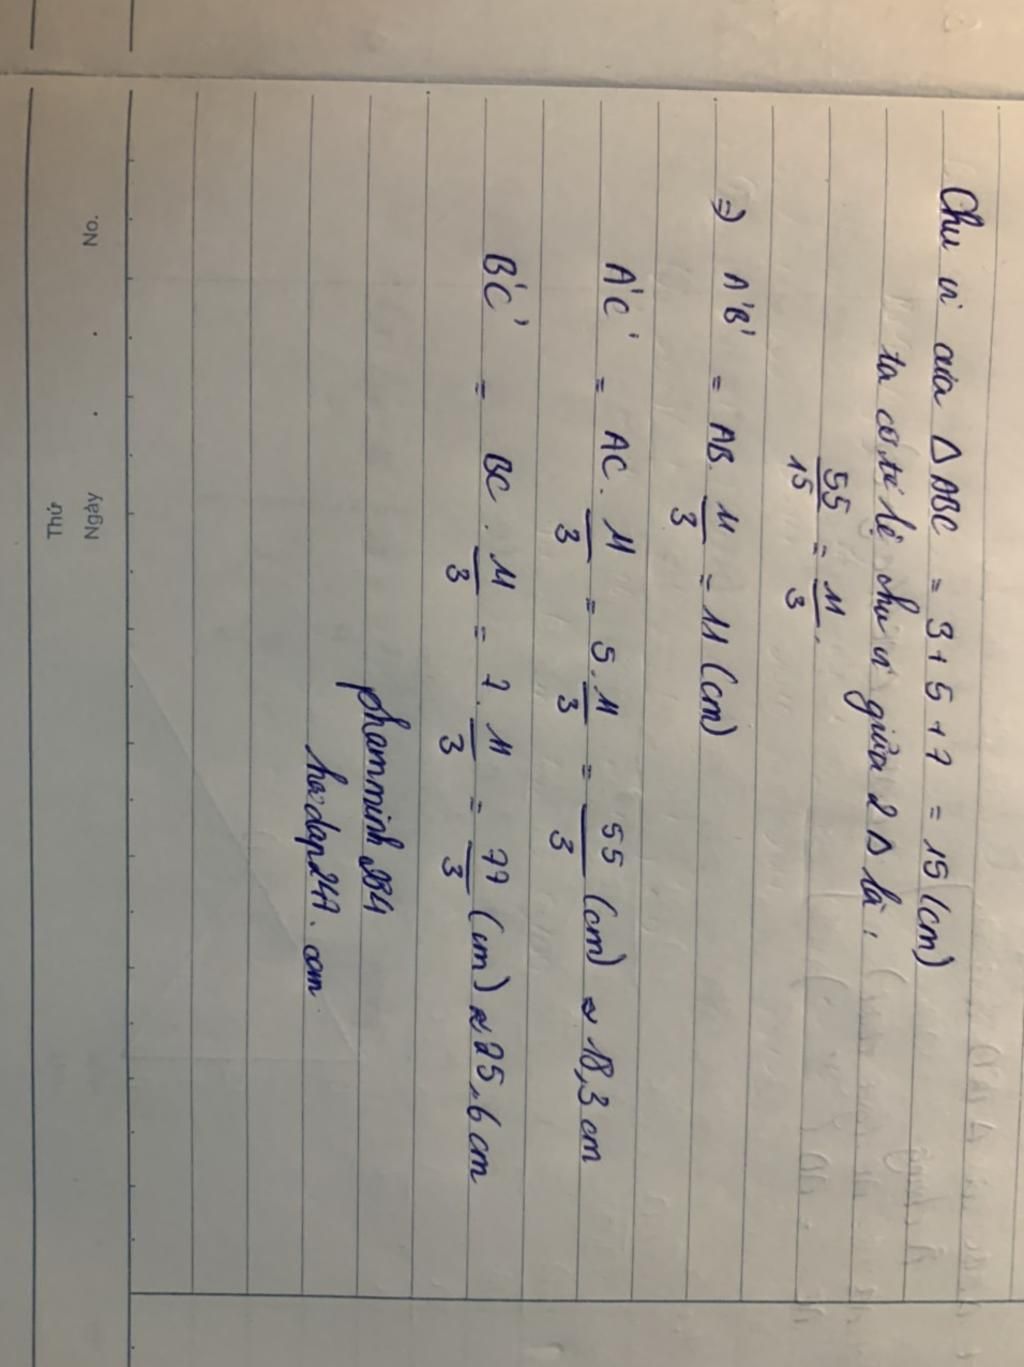 Chu vi của Δ ABC = 3 + 5 + 7 = 15 (cm)
ta có tỉ lệ chu vi giữa 2 Δ là :
55/15 = 11/3 .
=) A'B' = AB. 11/3 = 11 (cm)
A'C' = AC. 11/3 = 5. 11/3 = 55/3 (cm) ≈ 18,3 cm
B'C' = BC. 11/3 = 7. 11/3 = 77/3 (cm) ≈ 25,6 cm
phamminh284
hoidap247. com
Thứ
Ngày . .
No.